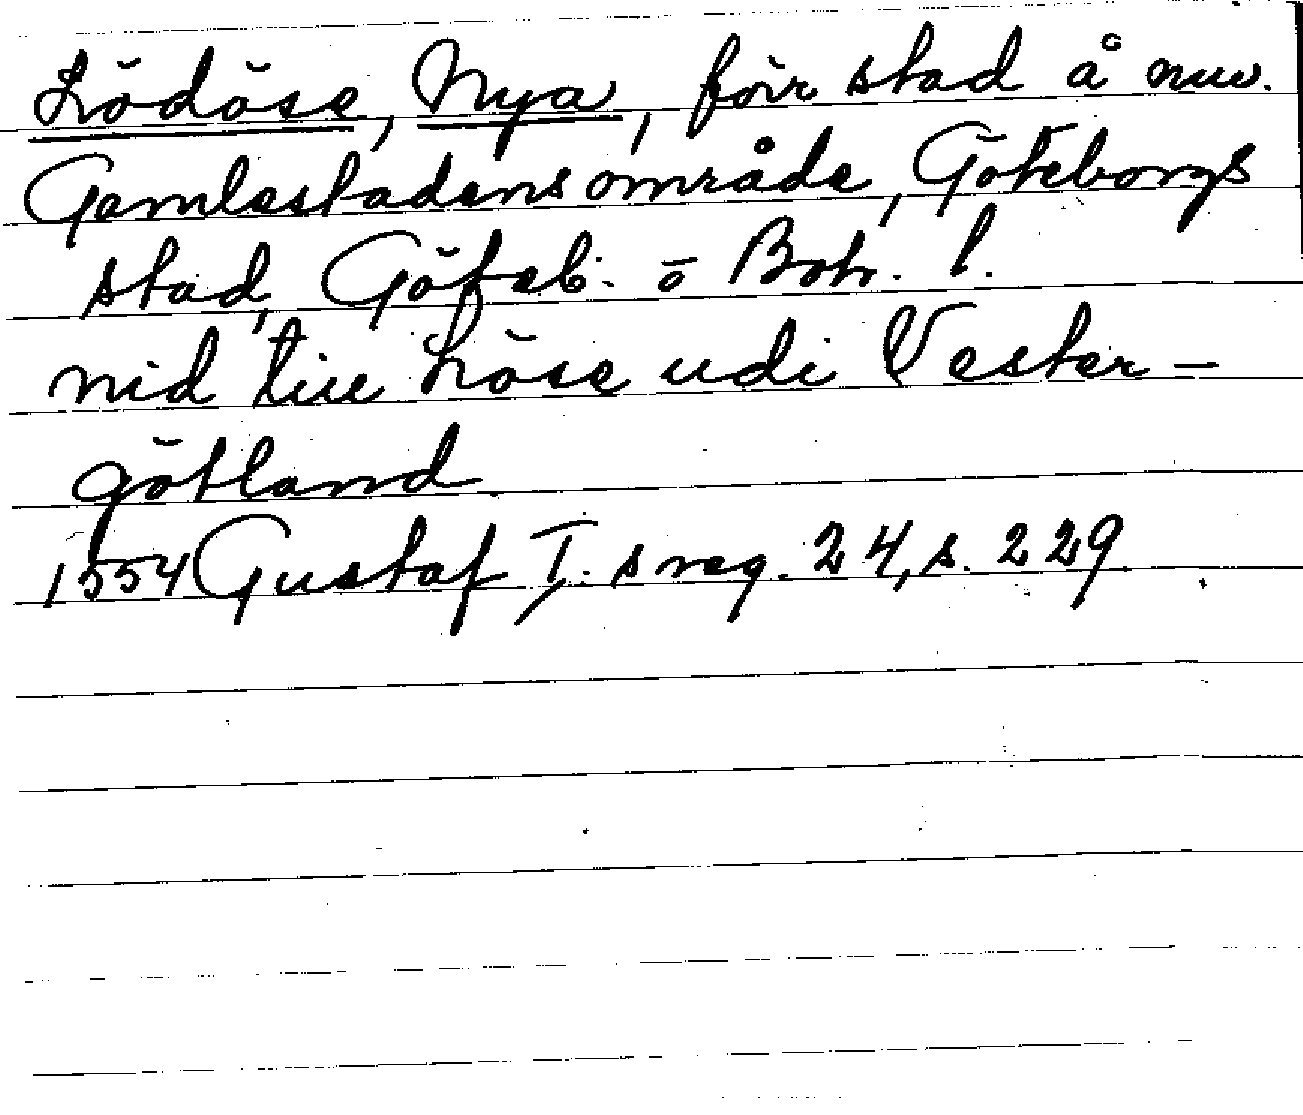 Lödöse, Nya, förr stad å nuv.
Gamlestadens område, Göteborgs
stad, Göteb. o Boh. l.
nid till Löse udi Vester-
götland
1554 Gustaf I:s reg. 24, s. 229